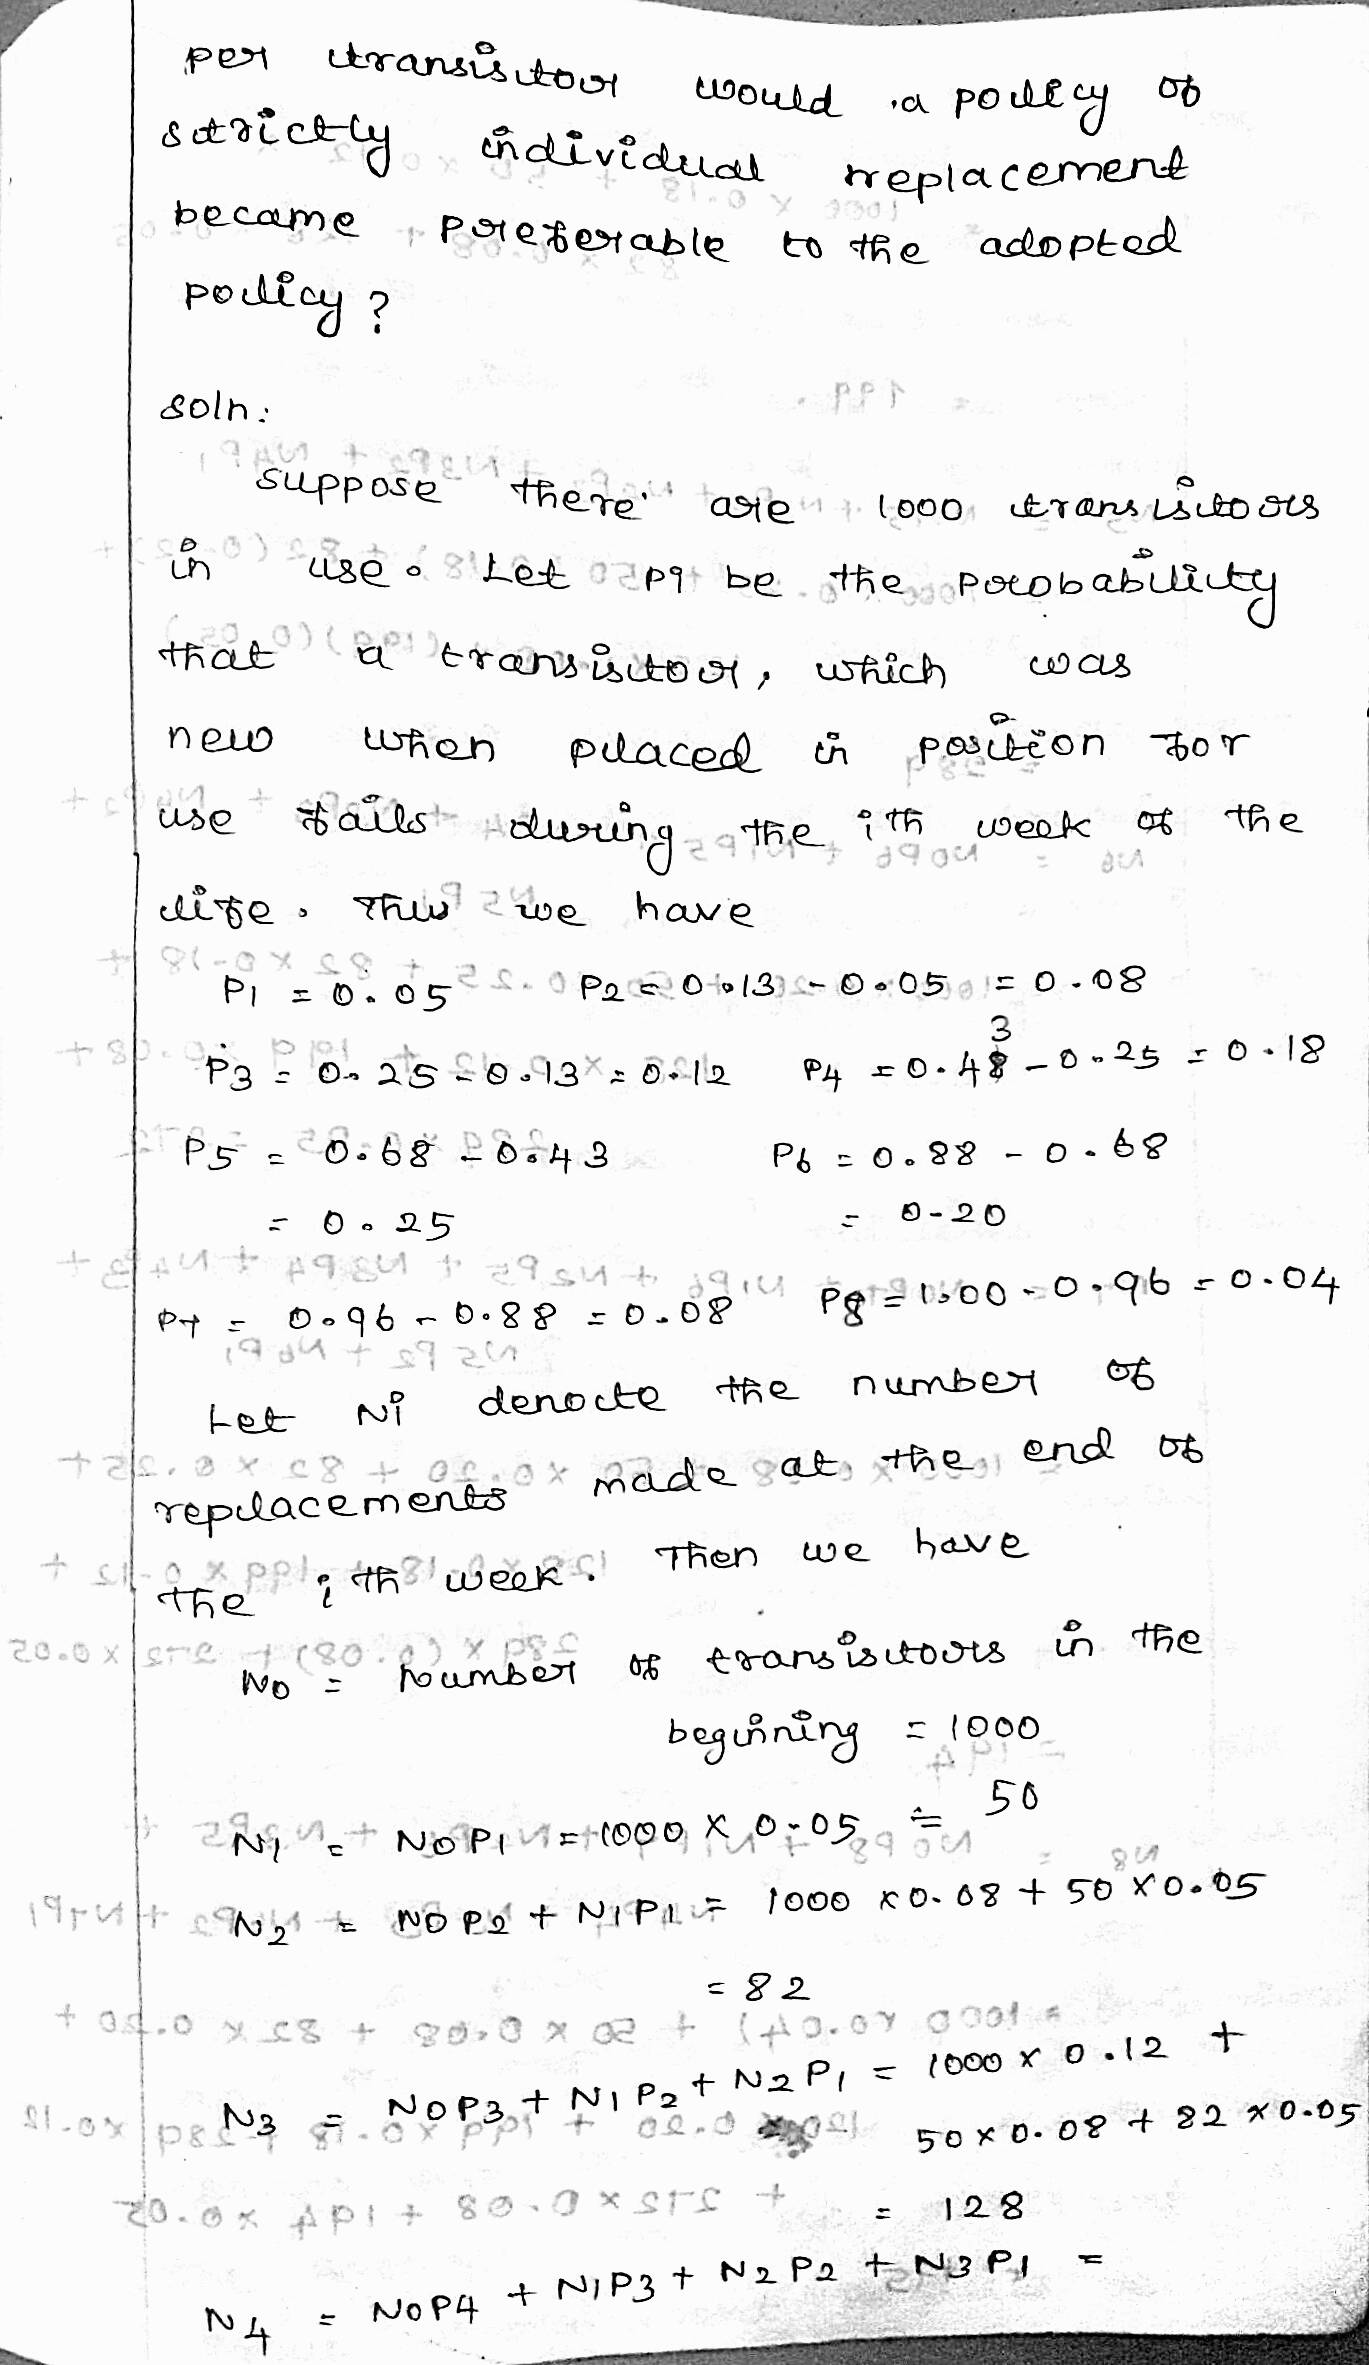 per transistor would a policy of
strictly individual replacement
became preferable to the adopted
policy?
soln:
suppose there are 1000 transistors
in use. Let pi be the probability
that a transistor, which was
new when placed in position for
use fails during the ith week of the
life. Thus we have
P1 = 0.05 P2 = 0.13 - 0.05 = 0.08
P3 = 0.25 - 0.13 = 0.12 P4 = 0.43 - 0.25 = 0.18
P5 = 0.68 - 0.43 P6 = 0.88 - 0.68
= 0.25 = 0-20
P7 = 0.96 - 0.88 = 0.08 P8 = 1.00 - 0.96 = 0.04
Let Ni denote the number of
replacements made at the end of
the ith week. Then we have
N0 = Number of transistors in the
beginning = 1000
N1 = N0P1 = 1000 x 0.05 = 50
N2 = N0P2 + N1P1 = 1000 x 0.08 + 50 x 0.05
= 82
N3 = N0P3 + N1P2 + N2P1 = 1000 x 0.12 +
50 x 0.08 + 82 x 0.05
= 128
N4 = N0P4 + N1P3 + N2P2 + N3P1 =